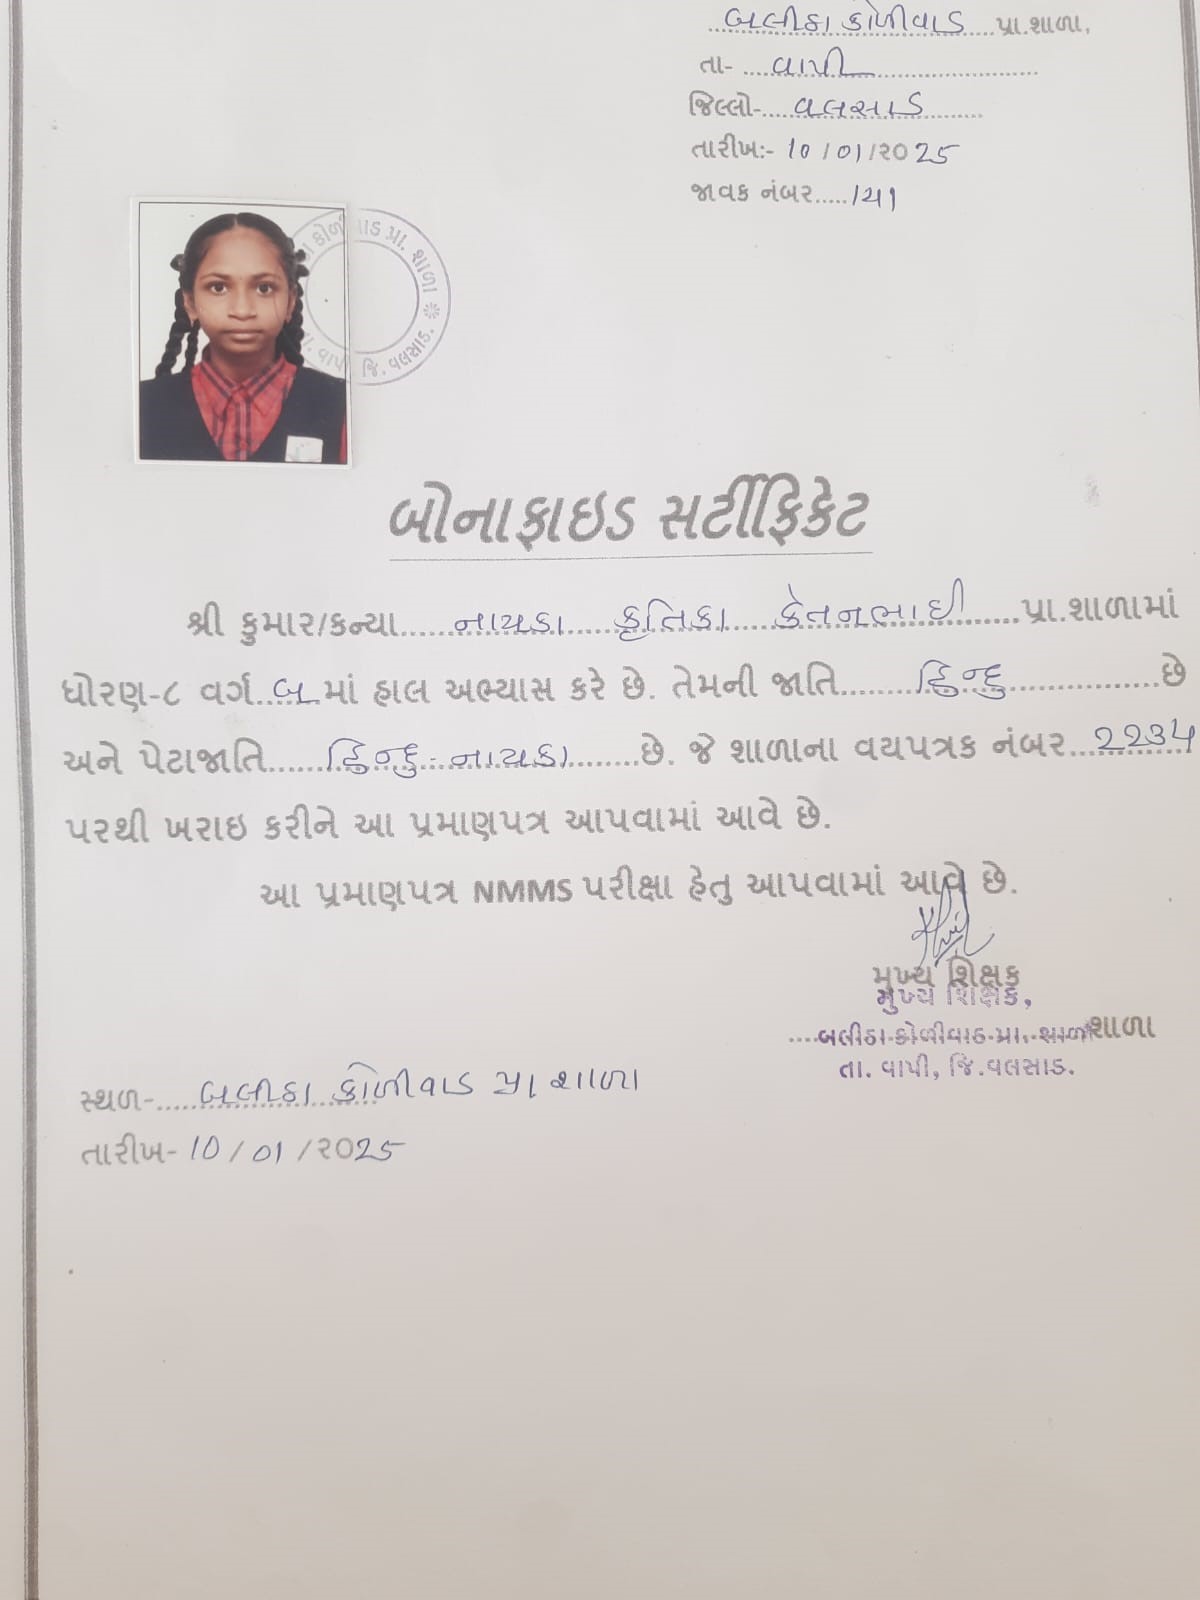 બલીઠા કોળીવાડ.....પ્રા.શાળા,
તા- ....વાપી............................
જિલ્લો-.....વલસાડ..........
તારીખઃ- 10/01/૨૦25
જાવક નંબર.....121
કોળીવાડ પ્રા. શાળા * જિ. વલસાડ. તા. વાપી
બોનાફાઇડ સર્ટીફિકેટ
શ્રી કુમાર/કન્યા.......નાયકા.....કૃતિકા.....કેતનભાઈ.......પ્રા.શાળામાં
ધોરણ-૮ વર્ગ..બ..માં હાલ અભ્યાસ કરે છે. તેમની જાતિ.........હિન્દુ................છે
અને પેટાજાતિ.......હિન્દુ-નાયકા.........છે. જે શાળાના વયપત્રક નંબર...2234
પરથી ખરાઇ કરીને આ પ્રમાણપત્ર આપવામાં આવે છે.
આ પ્રમાણપત્ર NMMS પરીક્ષા હેતુ આપવામાં આવે છે.
મુખ્ય શિક્ષક
મુખ્ય શિક્ષક,
....બલીઠા કોળીવાડ પ્રા. શાળા શાળા
તા. વાપી, જિ.વલસાડ.
સ્થળ-.....બલીઠા કોળીવાડ પ્રા શાળા
તારીખ- 10/01/૨૦25